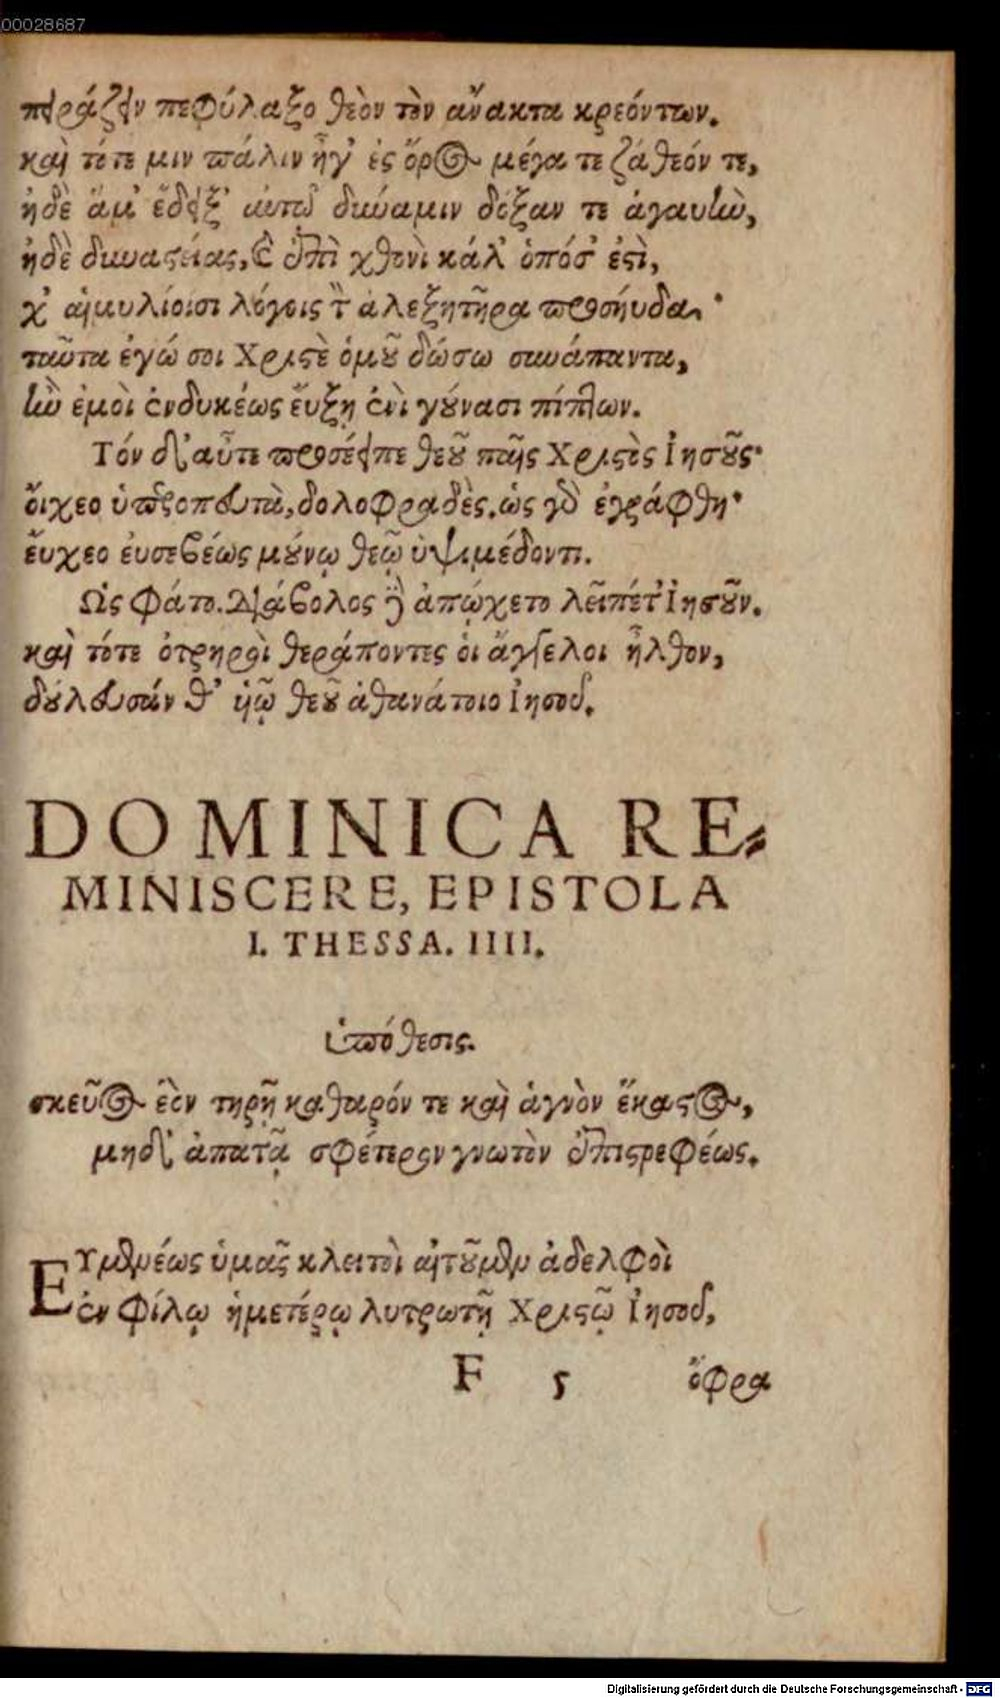 00028687
πειράζειν πεφύλαξο θεὸν τὸν ἄνακτα κρεόντων.
καὶ τότε μιν πάλιν ἦγ' ἐς ὄρος μέγα τε ζάθεόν τε,
ἠδὲ ἅμ' ἔδειξ' αὐτῷ δύναμιν δόξαν τε ἀγαυὴν,
ἠδὲ δυναστείας, καὶ ἐπὶ χθονὶ κάλ' ὁπόσ' ἐστὶ,
χ' αἱμυλίοισι λόγοις τὸν ἀλεξητῆρα προσηύδα·
ταῦτα ἐγώ σοι Χριστὲ ὁμοῦ δώσω συνάπαντα,
ἢν ἐμοὶ ἐνδυκέως εὔξῃ ἐνὶ γούνασι πίπτων.
Τόν δ' αὖτε προσέειπε θεοῦ παῖς Χριστὸς Ἰησοῦς·
οἴχεο ὑπεροπευτὰ, δολοφραδὲς. ὡς γὰρ ἐγράφθη·
εὔχεο εὐσεβέως μούνῳ θεῷ ὑψιμέδοντι.
Ὣς φάτο. Διάβολος δὲ ἀπῴχετο λεῖπέ τ' Ἰησοῦν.
καὶ τότε ὀτρηροὶ θεράποντες οἱ ἄγγελοι ἦλθον,
δούλευσάν θ' υἱῷ θεοῦ ἀθανάτοιο Ἰησοῦ.
DOMINICA RE-
MINISCERE, EPISTOLA
I. THESSA. IIII.
ὑπόθεσις.
σκεῦος ἑὸν τηρῇ καθαρόν τε καὶ ἁγνὸν ἕκαστος,
μηδ' ἀπατᾷ σφέτερον γνωτὸν ἐπιστρεφέως.
ΕΥμενέως ὑμᾶς κλειτοὶ αἰτοῦμεν ἀδελφοὶ
ἐν φίλῳ ἡμετέρῳ λυτρωτῇ Χριστῷ Ἰησοῦ,
F 5 ὄφρα
Digitalisierung gefördert durch die Deutsche Forschungsgemeinschaft - DFG